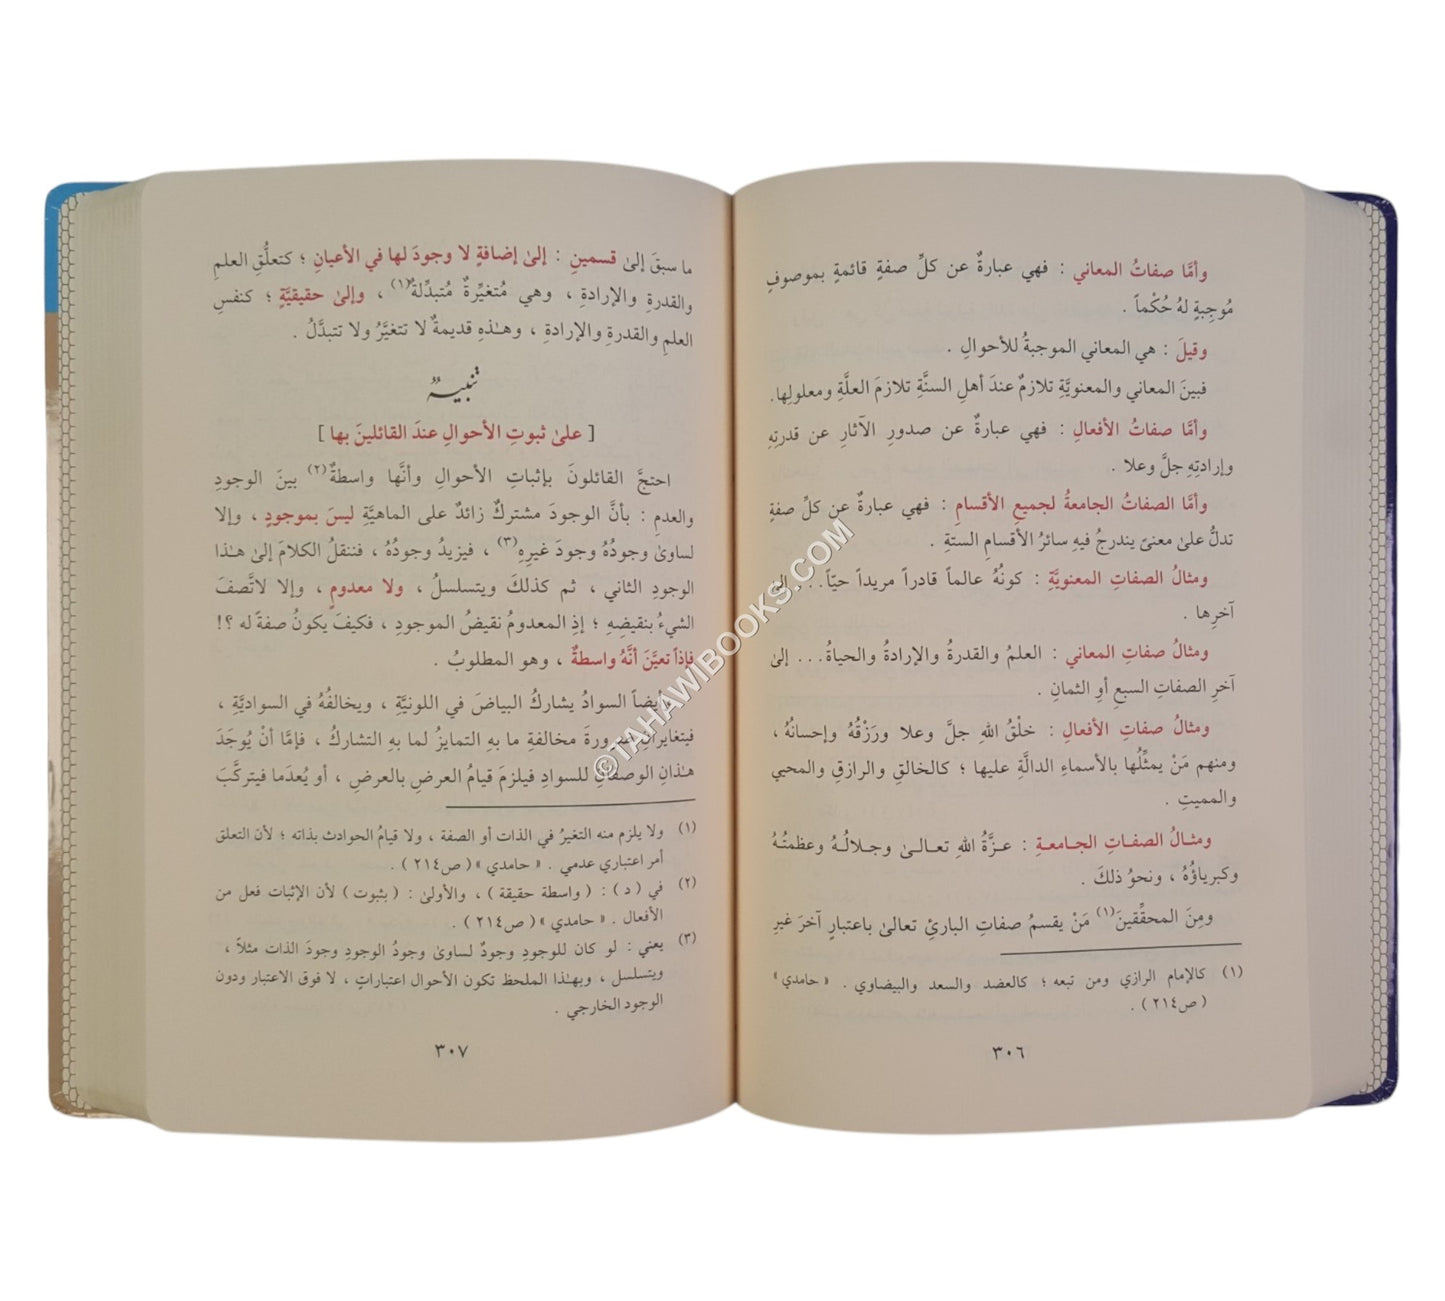 وأمَّا صفاتُ المعاني : فهي عبارةٌ عن كلِّ صفةٍ قائمةٍ بموصوفٍ
مُوجِبةٍ لهُ حُكْماً .
وقيلَ : هي المعاني الموجبةُ للأحوالِ .
فبينَ المعاني والمعنويَّةِ تلازمٌ عندَ أهلِ السنَّةِ تلازمَ العلَّةِ ومعلولِها .
وأمَّا صفاتُ الأفعالِ : فهي عبارةٌ عن صدورِ الآثارِ عن قدرتِهِ
وإرادتِهِ جلَّ وعلا .
وأمَّا الصفاتُ الجامعةُ لجميعِ الأقسامِ : فهي عبارةٌ عن كلِّ صفةٍ
تدلُّ علىٰ معنىً يندرجُ فيهِ سائرُ الأقسامِ الستةِ .
ومثالُ الصفاتِ المعنويَّةِ : كونُهُ عالماً قادراً مريداً حيّاً... إلىٰ
آخرِها .
ومثالُ صفاتِ المعاني : العلمُ والقدرةُ والإرادةُ والحياةُ... إلىٰ
آخرِ الصفاتِ السبعِ أوِ الثمانِ .
ومثالُ صفاتِ الأفعالِ : خلْقُ اللهِ جلَّ وعلا ورَزْقُهُ وإحسانُهُ ،
ومنهم مَنْ يمثِّلُها بالأسماءِ الدالَّةِ عليها ؛ كالخالقِ والرازقِ والمحيي
والمميتِ .
ومثـالُ الصفـاتِ الجـامعـةِ : عـزَّةُ اللهِ تعـالـىٰ وجـلالُـهُ وعظمتُـهُ
وكبرياؤُهُ ، ونحوُ ذلكَ .
ومِنَ المحقِّقينَ(١) مَنْ يقسمُ صفاتِ البارئِ تعالىٰ باعتبارٍ آخرَ غيرِ
(١) كالإمام الرازي ومن تبعه ؛ كالعضد والسعد والبيضاوي . « حامدي »
( ص٢١٤ ) .
٣٠٦
ما سبقَ إلىٰ قسمينِ : إلىٰ إضافةٍ لا وجودَ لها في الأعيانِ ؛ كتعلُّقِ العلمِ
والقدرةِ والإرادةِ ، وهي مُتغيِّرةٌ مُتبدِّلةٌ(١) ، وإلىٰ حقيقيَّةٍ ؛ كنفسِ
العلمِ والقدرةِ والإرادةِ ، وهـٰذهِ قديمةٌ لا تتغيَّرُ ولا تتبدَّلُ .
تنبيهٌ
[ علىٰ ثبوتِ الأحوالِ عندَ القائلينَ بها ]
احتجَّ القائلونَ بإثباتِ الأحوالِ وأنَّها واسطةٌ(٢) بينَ الوجودِ
والعدمِ : بأنَّ الوجودَ مشتركٌ زائدٌ على الماهيَّةِ ليسَ بموجودٍ ، وإلا
لساوىٰ وجودُهُ وجودَ غيرِهِ(٣) ، فيزيدُ وجودُهُ ، فننقلُ الكلامَ إلىٰ هـٰذا
الوجودِ الثاني ، ثم كذلكَ ويتسلسلُ ، ولا معدومٍ ، وإلا لاتَّصفَ
الشيءُ بنقيضِهِ ؛ إذِ المعدومُ نقيضُ الموجودِ ، فكيفَ يكونُ صفةً له ؟!
فإذاً تعيَّنَ أنَّهُ واسطةٌ ، وهو المطلوبُ .
وأيضاً السوادُ يشاركُ البياضَ في اللونيَّةِ ، ويخالفُهُ في السواديَّةِ ،
فيتغايرانِ ضرورةَ مخالفةِ ما بهِ التمايزُ لما بهِ التشاركُ ، فإمَّا أنْ يُوجَدَ
هـٰذانِ الوصفانِ للسوادِ فيلزمَ قيامُ العرضِ بالعرضِ ، أو يُعدَما فيتركَّبَ
(١) ولا يلزم منه التغيرُ في الذات أو الصفة ، ولا قيامُ الحوادث بذاته ؛ لأن التعلق
أمر اعتباري عدمي . « حامدي » ( ص٢١٤ ) .
(٢) في ( د ) : ( واسطة حقيقة ) ، والأولىٰ : ( بثبوت ) لأن الإثبات فعل من
الأفعال . « حامدي » ( ص٢١٤ ) .
(٣) يعني : لو كان للوجودِ وجودٌ لساوىٰ وجودُ الوجودِ وجودَ الذات مثلاً ،
ويتسلسل ، وبهـٰذا الملحظ تكون الأحوال اعتباراتٍ ، لا فوق الاعتبار ودون
الوجود الخارجي .
٣٠٧
©TAHAWIBOOKS.COM